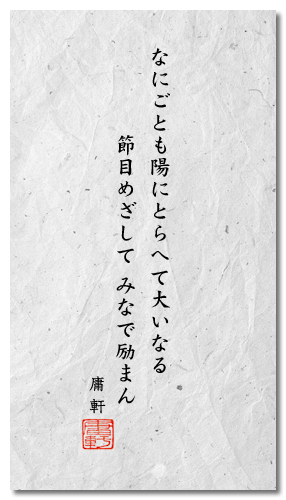 なにごとも陽にとらへて大いなる
節目めざして みなで励まん
庸軒